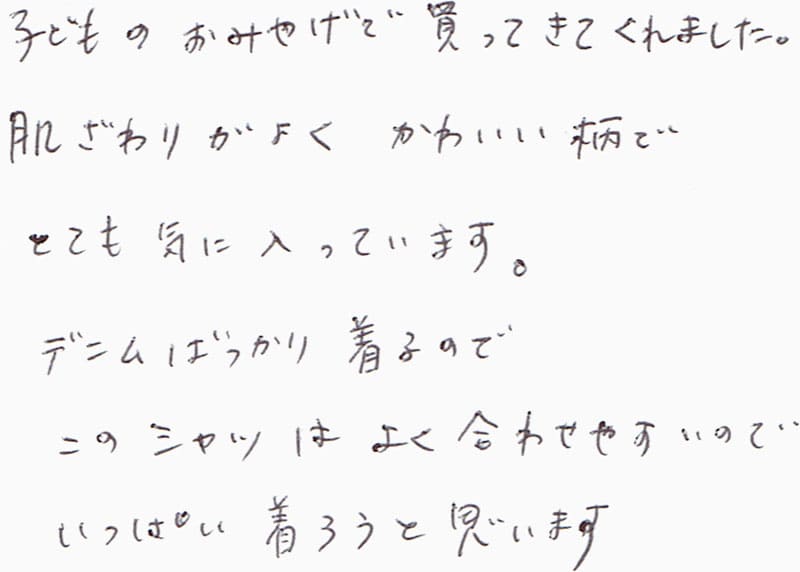 子どものおみやげで買ってきてくれました。
肌ざわりがよく かわいい柄で
とても気に入っています。
デニムばっかり着るので
このシャツはよく合わせやすいので
いっぱい着ろうと思います